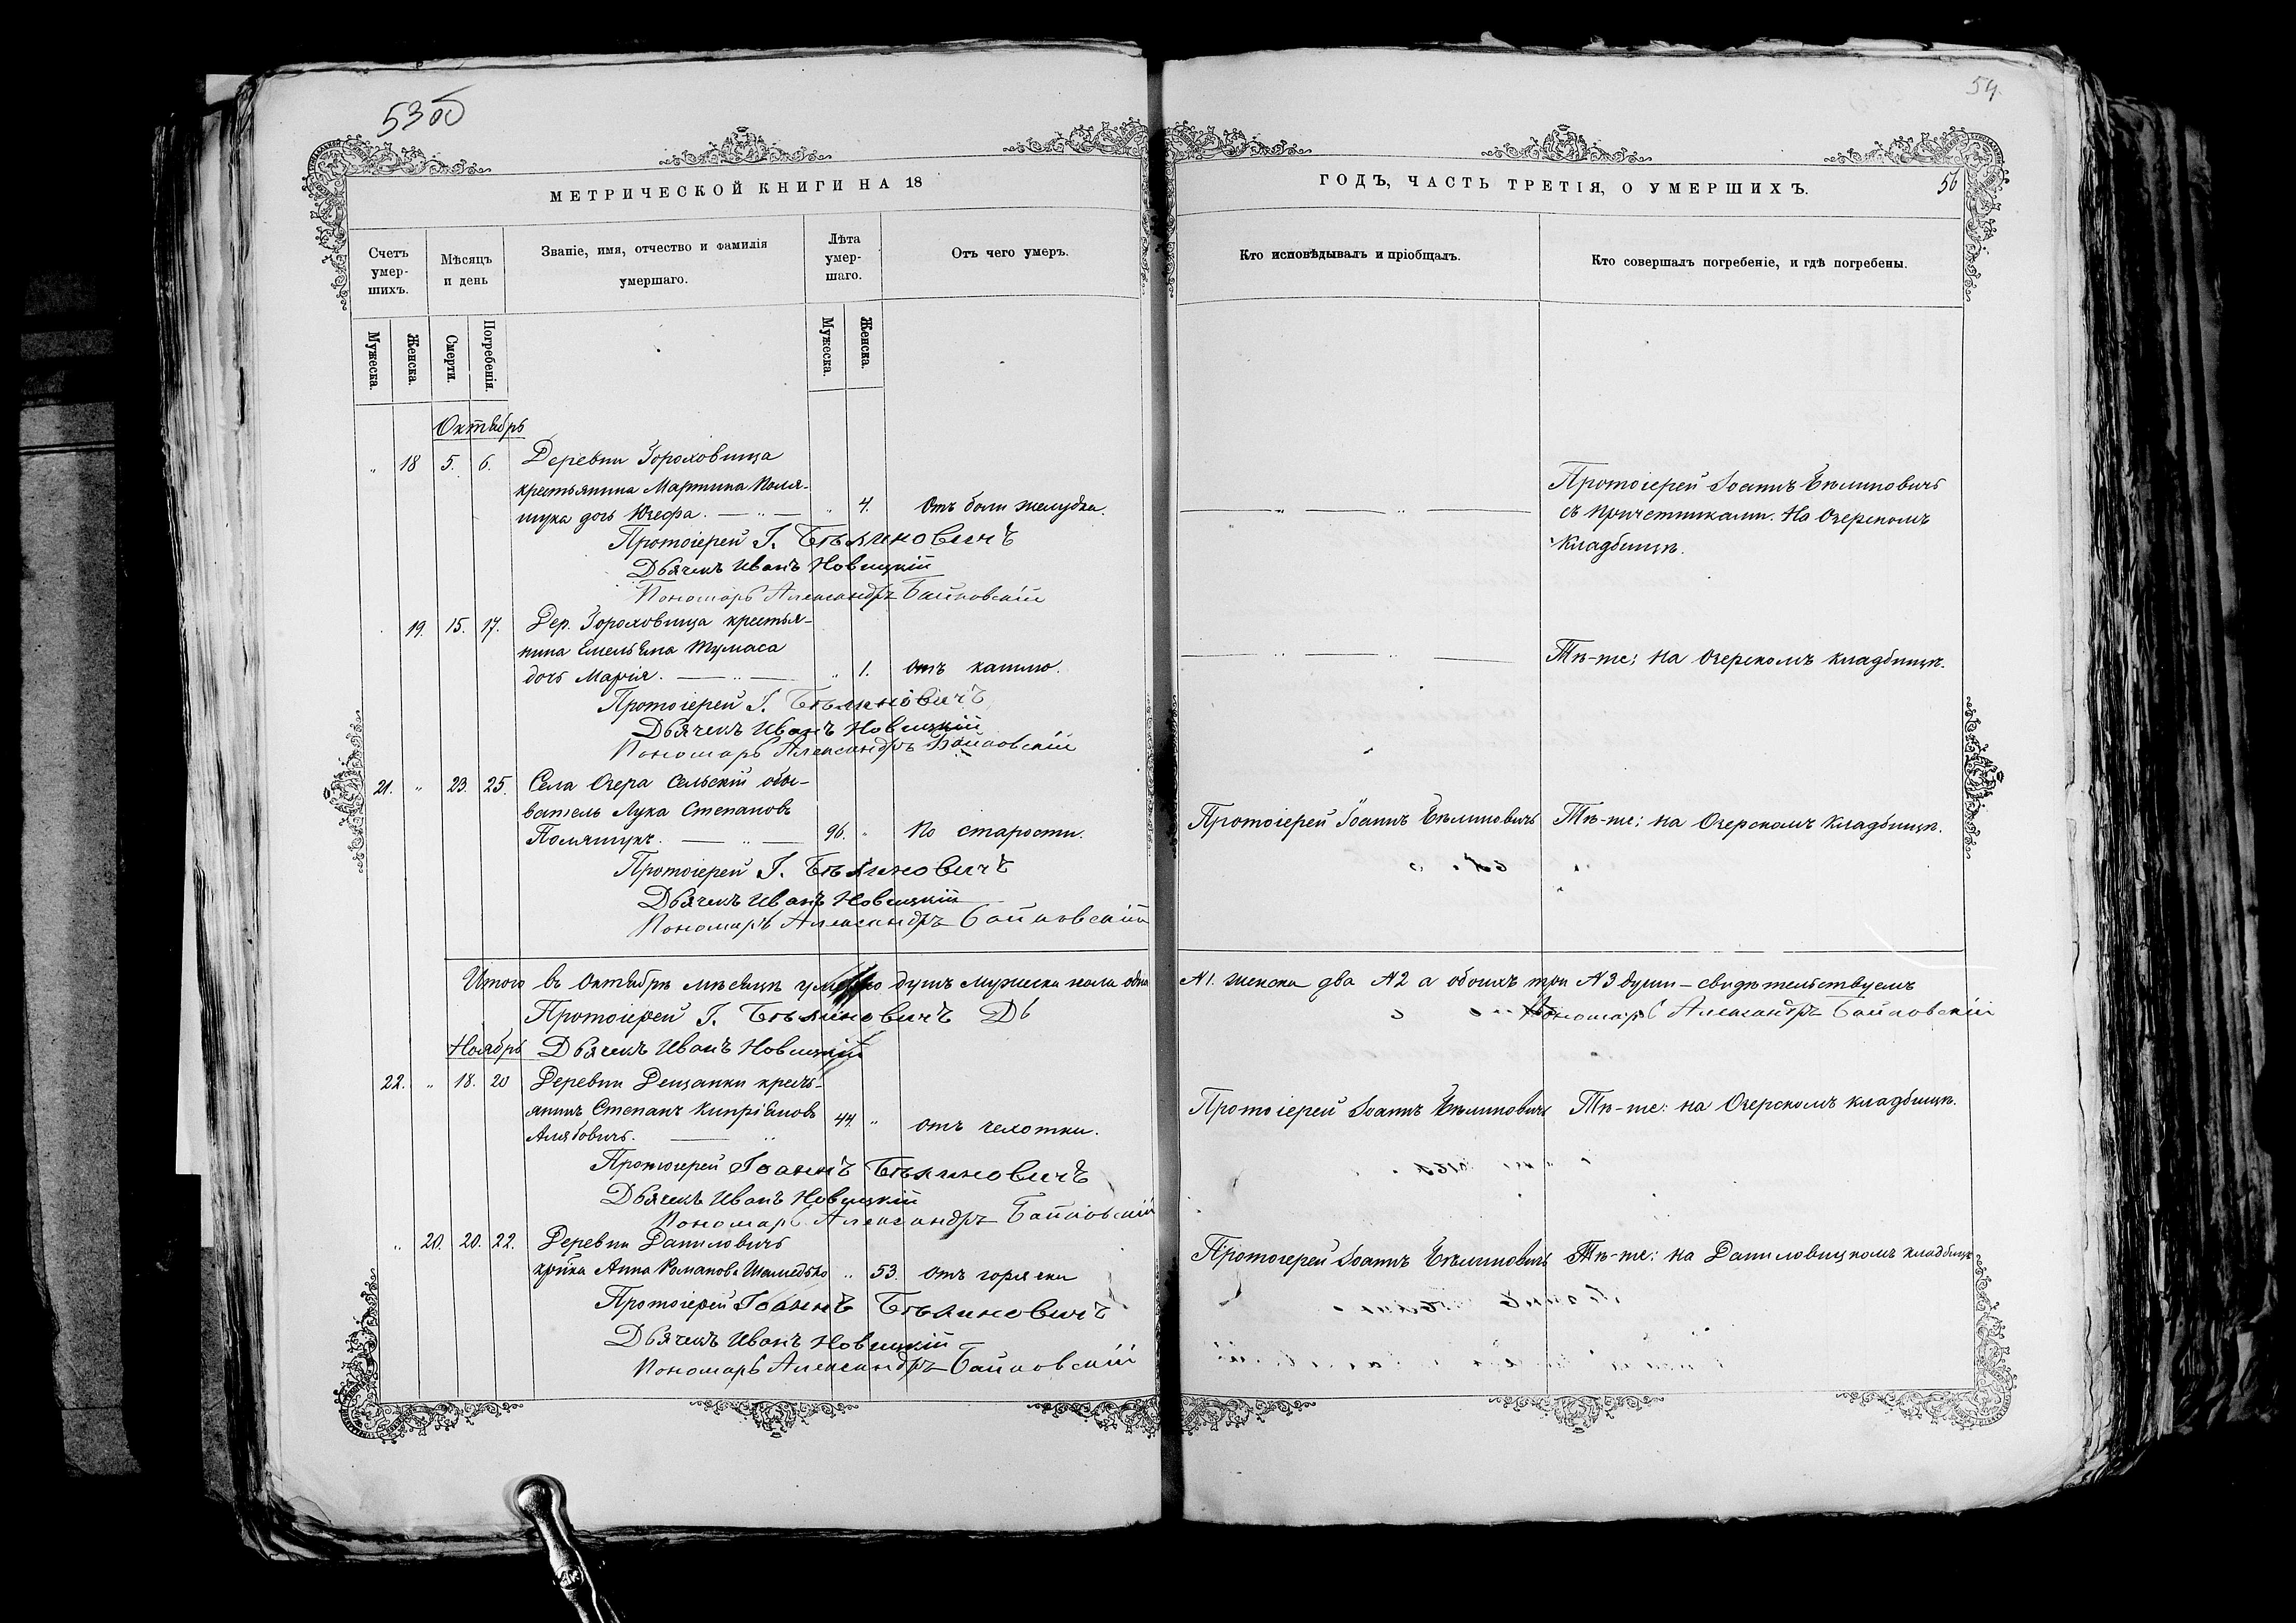 53об
54
МЕТРИЧЕСКОЙ КНИГИ НА 18
ГОДЪ, ЧАСТЬ ТРЕТІЯ, О УМЕРШИХЪ.
56
Счетъ умер-шихъ.
Мѣсяцъ и день
Званіе, имя, отчество и фамилія умершаго.
Лѣта умер-шаго.
Отъ чего умеръ.
Кто исповѣдывалъ и пріобщалъ.
Кто совершалъ погребеніе, и гдѣ погребены.
Мужеска.
Женска.
Смерти.
Погребенія.
Мужеска.
Женска.
Октябрь
„ 18 5. 6. Деревни Гороховища
крестьянина Мартина Поля-
щука дочь Юзефа. — „ — „ 4. Отъ боли желудка.
— „ — „ —
Протоіерей Іоаннъ Бѣлиновичъ
съ причетниками. На Озерскомъ
Кладбищѣ.
Протоіерей І. Бѣлиновичъ
Дьячекъ Иванъ Новицкій
Пономарь Александръ Байковскій
19. 15. 17. Дер. Гороховища крестья-
нина Емельяна Тумаса
дочь Марія. — „ — „ 1. Отъ кашлю.
— „ — „ —
Тѣ-же; на Озерскомъ кладбищѣ.
Протоіерей І. Бѣлиновичъ
Дьячекъ Иванъ Новицкій
Пономарь Александръ Байковскій
21. „ 23. 25. Села Озера Сельскій обы-
ватель Лука Степановъ
Полящукъ. — „ — 96. „ По старости.
Протоіерей Іоаннъ Бѣлиновичъ
Тѣ-же; на Озерскомъ Кладбищѣ.
Протоіерей І. Бѣлиновичъ
Дьячекъ Иванъ Новицкій
Пономарь Александръ Байковскій
Итого въ Октябрѣ мѣсяцѣ умерло душъ мужеска пола одна №1. женска два №2 а обоихъ три №3 души – свидѣтельствуемъ
Протоіерей І. Бѣлиновичъ Дь
Пономарь Александръ Байковскій
Ноябрь Дьячекъ Иванъ Новицкій
22. „ 18. 20 Деревни Дещанки кресть-
янинъ Степанъ Кипріановъ
44. „ отъ чехотки.
Протоіерей Іоаннъ Бѣлиновичъ
Тѣ-же: на Озерскомъ кладбищѣ.
Протоіерей Іоаннъ Бѣлиновичъ
Дьячекъ Иванъ Новицкій
Пономарь Александръ Байковскій
„ 20. 20. 22. Деревни Даниловичъ
Анна Романова „ 53. отъ горячки
Протоіерей Іоаннъ Бѣлиновичъ
Тѣ-же: на Даниловицкомъ кладбищѣ
Протоіерей Іоаннъ Бѣлиновичъ
Дьячекъ Иванъ Новицкій
Пономарь Александръ Байковскій